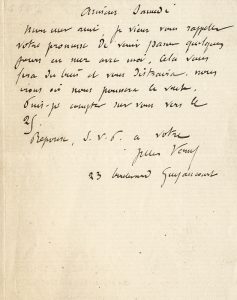 Amiens Samedi
Mon cher ami, je viens vous rappeler
votre promesse de venir passer quelques
jours en mer avec moi. Cela vous
fera du bien et vous distraira. Nous
irons où nous poussera le vent.
Puis-je compter sur vous vers le
25.
Réponse, S.V.P. à votre
Jules Verne
23 boulevard Guyencourt